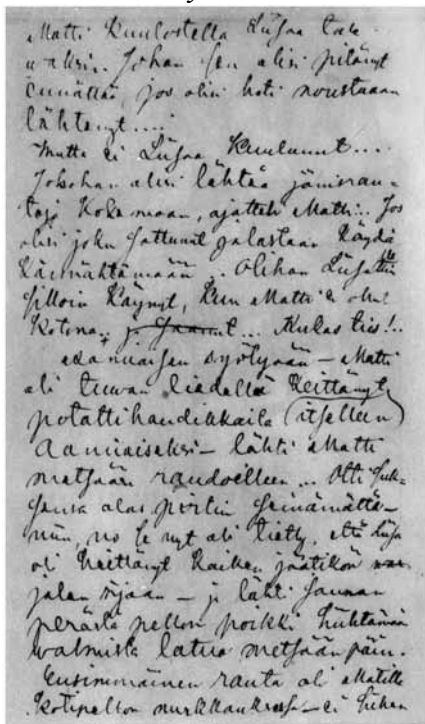 Matti Kuulostella Liisaa tak
waksi. Johan sen olisi pitänyt
ennättää, jos olisi heti noustuaan
lähtenyt....
Mutta ei Liisaa Kuulunut....
Jokohan olisi lähteä jänisrau=
toja Kokemaan, ajatteli Matti... Jos
olisi joku sattunut jalastaan Käydä
Kärmähtämään .. Olihan Liisalta
silloin Käynyt, kun Matti ei ollut
Kotona. ja saanut... Kukas ties!..
syötyään — Matti
oli tuwan liedellä Keittänyt
potattihaudikkaita (itselleen)
Aamiaiseksi — lähti Matti
metsään raudoilleen... Otti suk=
sensa alas pirtin seinämältä —
niin, no se nyt oli tietty, että Liisa
oli heittänyt Kaiken jäätikön
jalan sijaan — ja lähti saunan
perästä pellon poikki hiihtämään
walmista latua metsään päin.
Ensimmäinen rauta oli Matilla
Kotipellon nurkkauksessa — ei siihen